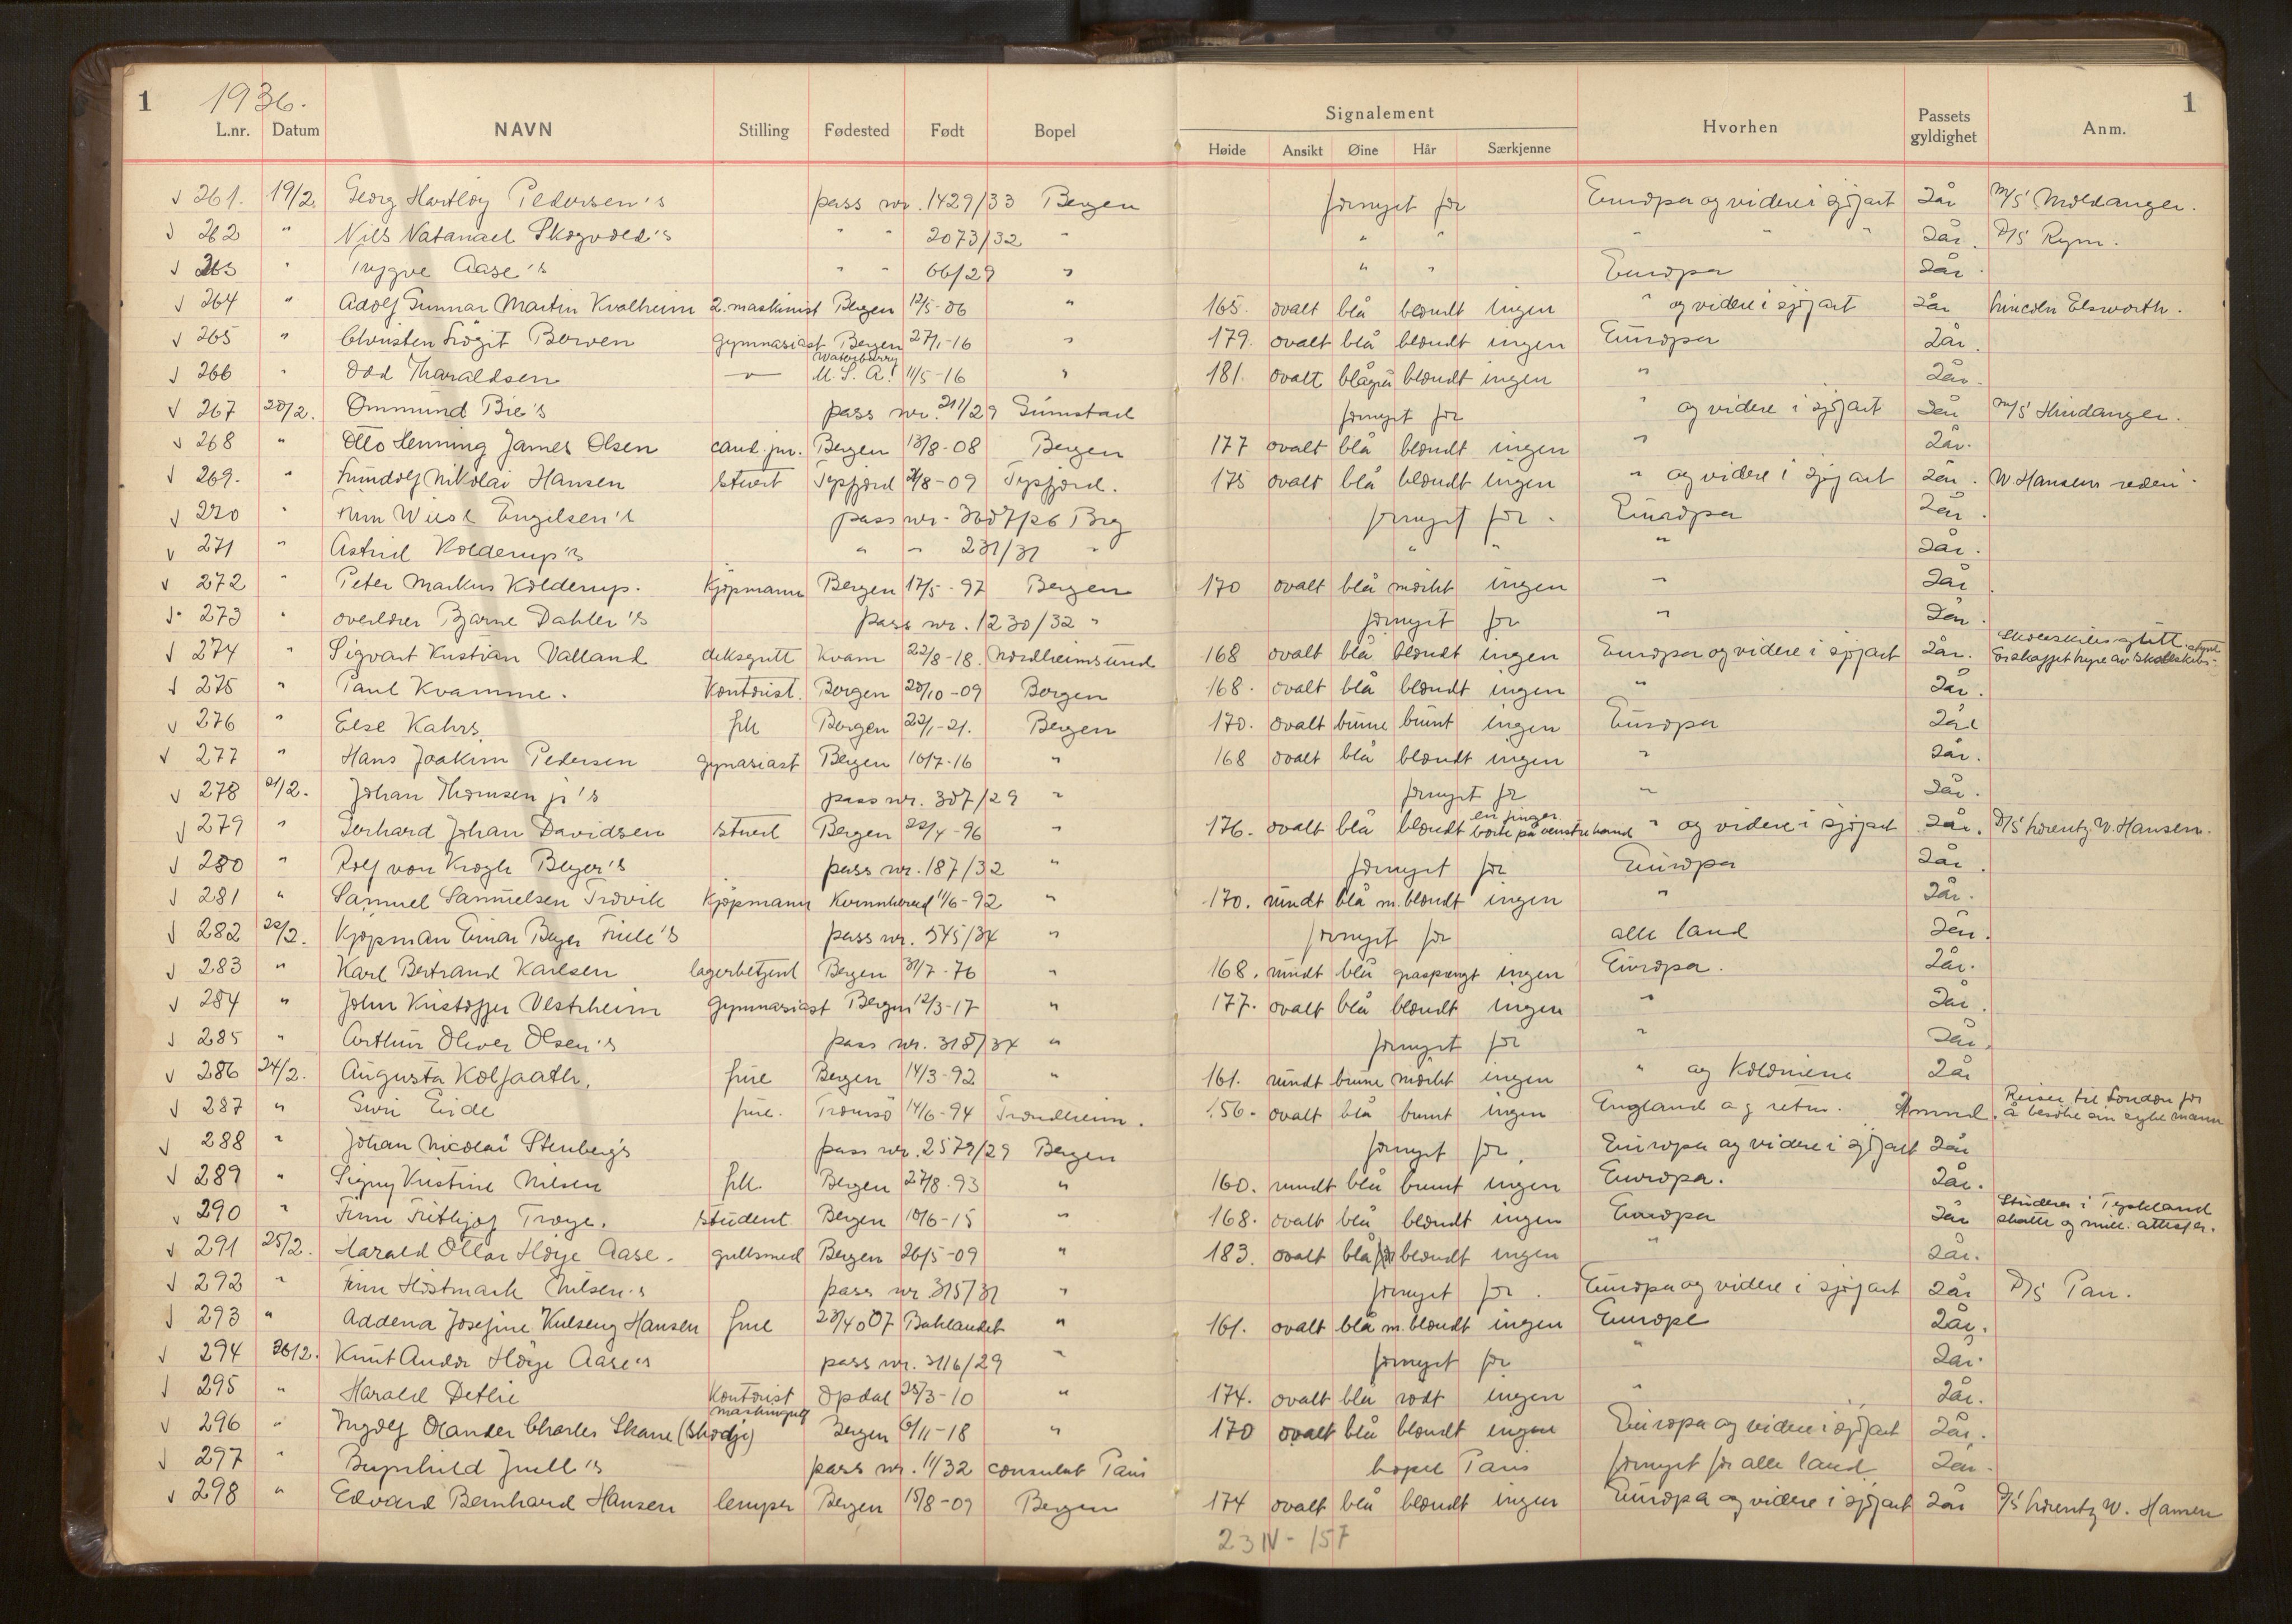 1 1936. 1
L.nr. Datum NAVN Stilling Fødested Født Bopel Signalement Hvorhen Passets gyldighet Anm.
Høide Ansikt Øine Hår Særkjenne
261. 19/2. Georg Hartlöy Pedersen's pass nr. 1429/33 Bergen fornyet for Europa og videre i sjöfart 2år M/S Moldanger.
262 " Nils Natanael Skogvold's " " 2073/32 " " " " " " 2år. D/S Rym.
263 " Trygve Aase's " " 66/29 " " " Europa 2år
264 " Adolf Gunnar Martin Kvalheim 2. maskinist Bergen 12/5-06 " 165. ovalt blå blondt ingen " og videre i sjöfart 2år Lincoln Elsworth.
265 " Christen Frögit Borven gymnasiast Bergen 27/1-16 " 179. ovalt blå blondt ingen Europa 2år.
266 " Odd Tharaldsen " Waterburry U.S.A. 11/5-16 " 181. ovalt blågrå blondt ingen " 2år.
267 20/2. Ommund Bie's pass nr. 211/29 Grimstad fornyet for " og videre i sjöfart 2år M/S Hindanger.
268 " Otto Henning James Olsen cand. jur. Bergen 13/8-08 Bergen 177 ovalt blå blondt ingen " 2år.
269. " Lundolf Nikolai Hansen stuert Typfjord 21/8-09 Typfjord. 175 ovalt blå blondt ingen " og videre i sjöfart 2år. W. Hansens rederi.
270 " Finn Wiese Engelsen's pass nr. 3657/26 Brg fornyet for. Europa 2år.
271 " Astrid Kolderup's " " 231/31 " " " " 2år.
272 " Peter Markus Kolderup. Kjöpmann Bergen 17/5-97 Bergen 170 ovalt blå mörkt ingen " 2år.
273 " overlærer Bjarne Dahler's pass nr. 1230/32 " fornyet for " 2år.
274 " Sigvart Kristian Valland deksgutt Kvam 22/8-18. Nordheimsund 168 ovalt blå blondt ingen Europa og videre i sjöfart 2år.
275 " Paul Kvamme. Kontorist. Bergen 20/10-09 Bergen 168. ovalt blå blondt ingen " 2år.
276 " Else Kahrs frk Bergen 22/1-21. Bergen 170. ovalt brune brunt ingen Europa 2år
277 " Hans Joakim Pedersen gynasiast Bergen 10/7-16 " 168 ovalt blå blondt ingen " 2år.
278 21/2. Johan Thomsen jr's pass nr. 307/29 " fornyet for " 2år.
279 " Gerhard Johan Davidsen stuert Bergen 22/4-96 " 176. ovalt blå blondt en finger borte på venstre hand " og videre i sjöfart 2år. D/S Lorentz W. Hansen.
280 " Rolf von Krogh Beyer's pass nr. 187/32 " fornyet for Europa 2år.
281 " Samuel Samuelsen Trovik Kjöpmann Kvinnherad 11/6-92 " 170. rundt blå m. blondt ingen " 2år.
282 22/2. Kjöpman Einar Beyer Friele's pass nr. 545/34 " fornyet for alle land 2år.
283 " Karl Bertrand Karlsen lagerbetjent Bergen 31/7-76 " 168. rundt blå graspr­engt ingen Europa. 2år.
284 " John Kristoffer Vestrheim gymnasiast Bergen 12/3-17 " 177. ovalt blå blondt ingen " 2år.
285 " Arthur Oliver Olsen's pass nr. 318/34 " fornyet for " 2år.
286 24/2. Augusta Kolfaath. frue Bergen 14/3-92 " 161. rundt brune mörkt ingen " og Koloniene 2år
287 " Guri Eide frue. Tromsö 14/6-94 Trondheim. 156. ovalt blå brunt ingen England og retur. 4mnd. Reiser til London for å besöke sin syke mann
288 " Johan Nicolai Stenberg's pass nr. 2579/29 Bergen fornyet for. Europa og videre i sjöfart 2år
289 " Signy Kristine Nilsen frk. Bergen 27/8-93 " 160. rundt blå brunt ingen Europa. 2år.
290 " Finn Frithjof Troye. student Bergen 10/6-15 " 168. ovalt blå blondt ingen Europa 2år Studerer i Tyskland skatte og mil. attester.
291 25/2. Harald Ottar Höye Aase. gullsmed Bergen 26/5-09 " 183. ovalt blå blondt ingen " 2år.
292 " Finn Höstmark Nilsen's pass nr 315/31 " fornyet for. Europa og videre i sjöfart 2år D/S Pan.
293 " Addena Josefine Kulseng Hansen frue 23/4 07 Baklandet " 161. ovalt blå m. blondt ingen Europe 2år.
294 26/2. Knut Andor Höye Aase's pass nr. 3116/29 " fornyet for " 2år.
295 " Harald Detlie Kontorist Opdal 25/3-10 " 174. ovalt blå rödt ingen " 2år.
296 " Ingolf Olander Charles Skare (Skodje) maskingutt Bergen 6/11-18 " 170 ovalt blå blondt ingen Europa og videre i sjöfart 2år.
297 " Brynhild Juell's pass nr. 11/32 consulat Paris bopel Paris fornyet for alle land 2år.
298 " Edvard Bernhard Hansen lemper Bergen 15/8-09 Bergen 174 ovalt blå blondt ingen Europa og videre i sjöfart 2år D/S Lorentz W. Hansen
23 IV - 157